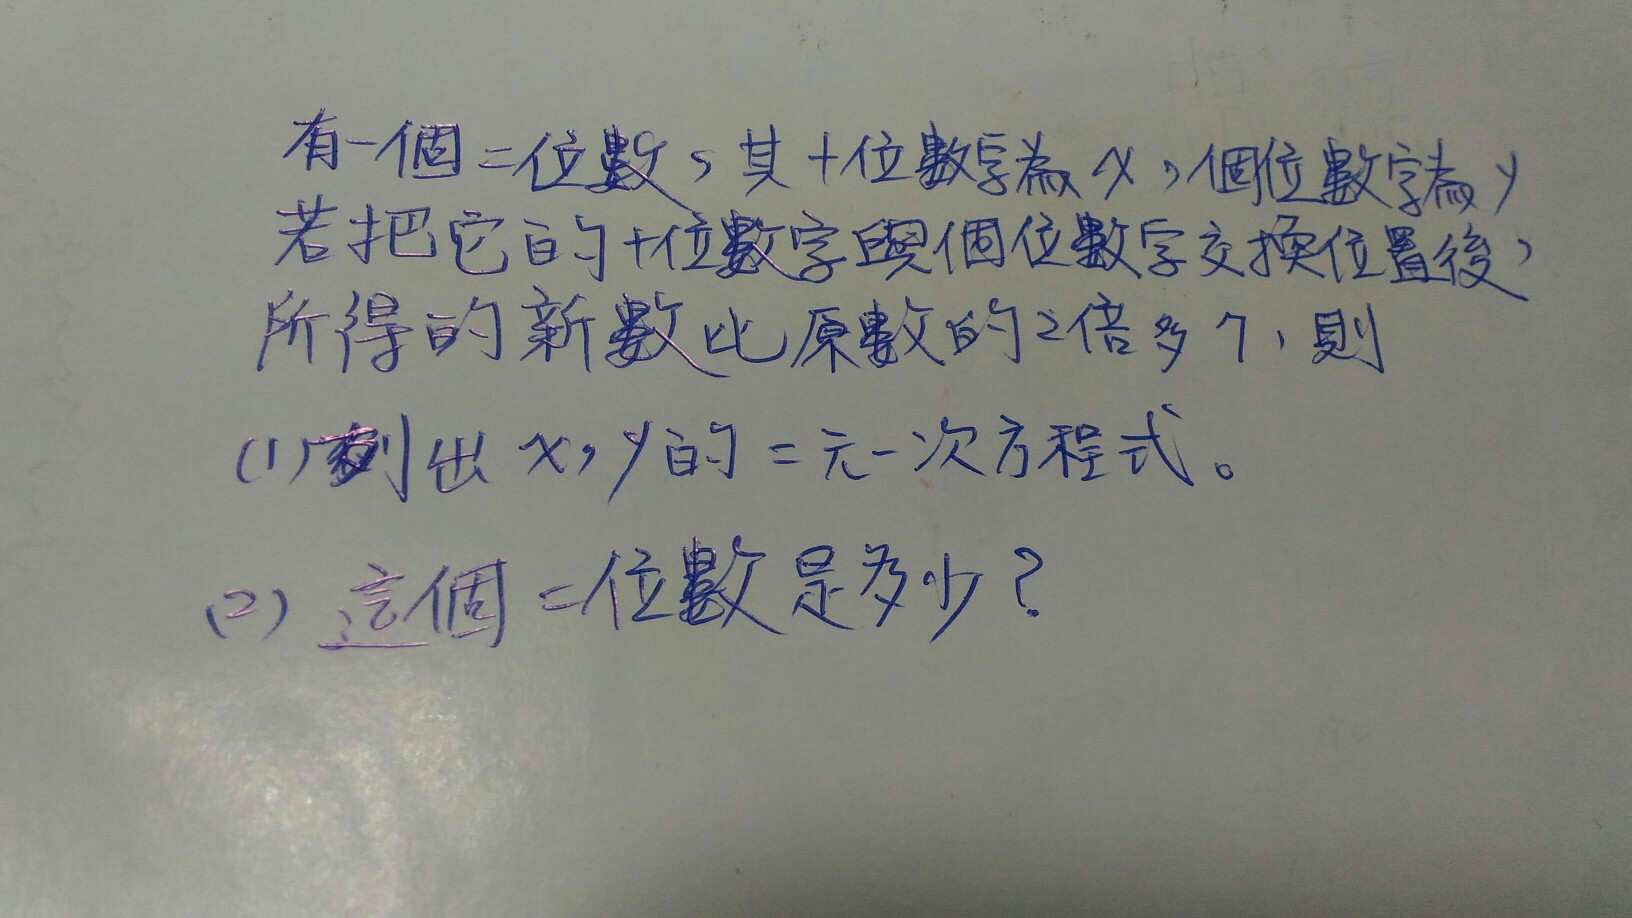 有一個二位數,其十位數字為x,個位數字為y
若把它的十位數字與個位數字交換位置後,
所得的新數比原數的2倍多7,則
(1)列出x,y的二元一次方程式。
(2)這個二位數是多少?